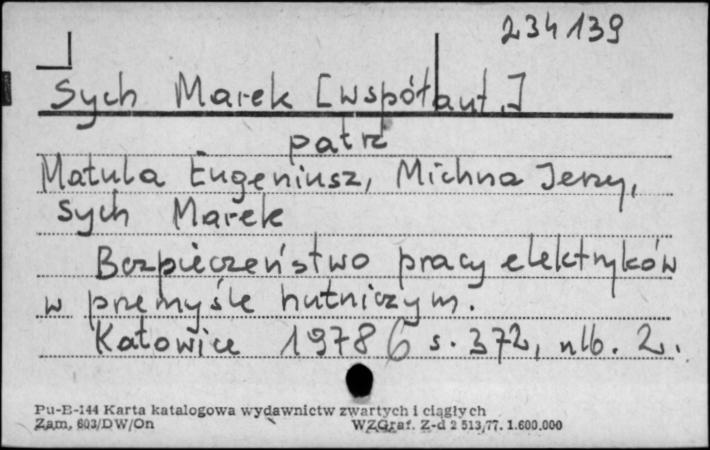 234139
Sych Marek [współaut.]
patrz
Matula Eugeniusz, Michna Jerzy,
Sych Marek
Bezpieczeństwo pracy elektryków
w przemyśle hutniczym.
Katowice 1978 6 s. 372, nlb. 2.
Pu-E-144 Karta katalogowa wydawnictw zwartych i ciągłych
Zam. 603/DW/On WZGraf. Z-d 2 513/77. 1.600.000